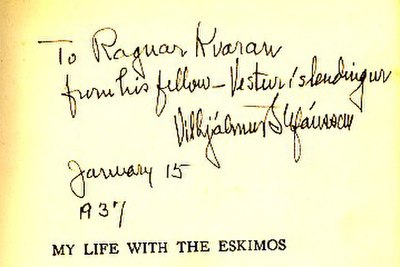 To Ragnar Kvaran
from his fellow-Vesturíslendingur
Vilhjálmur Stefánsson
January 15
1937
MY LIFE WITH THE ESKIMOS